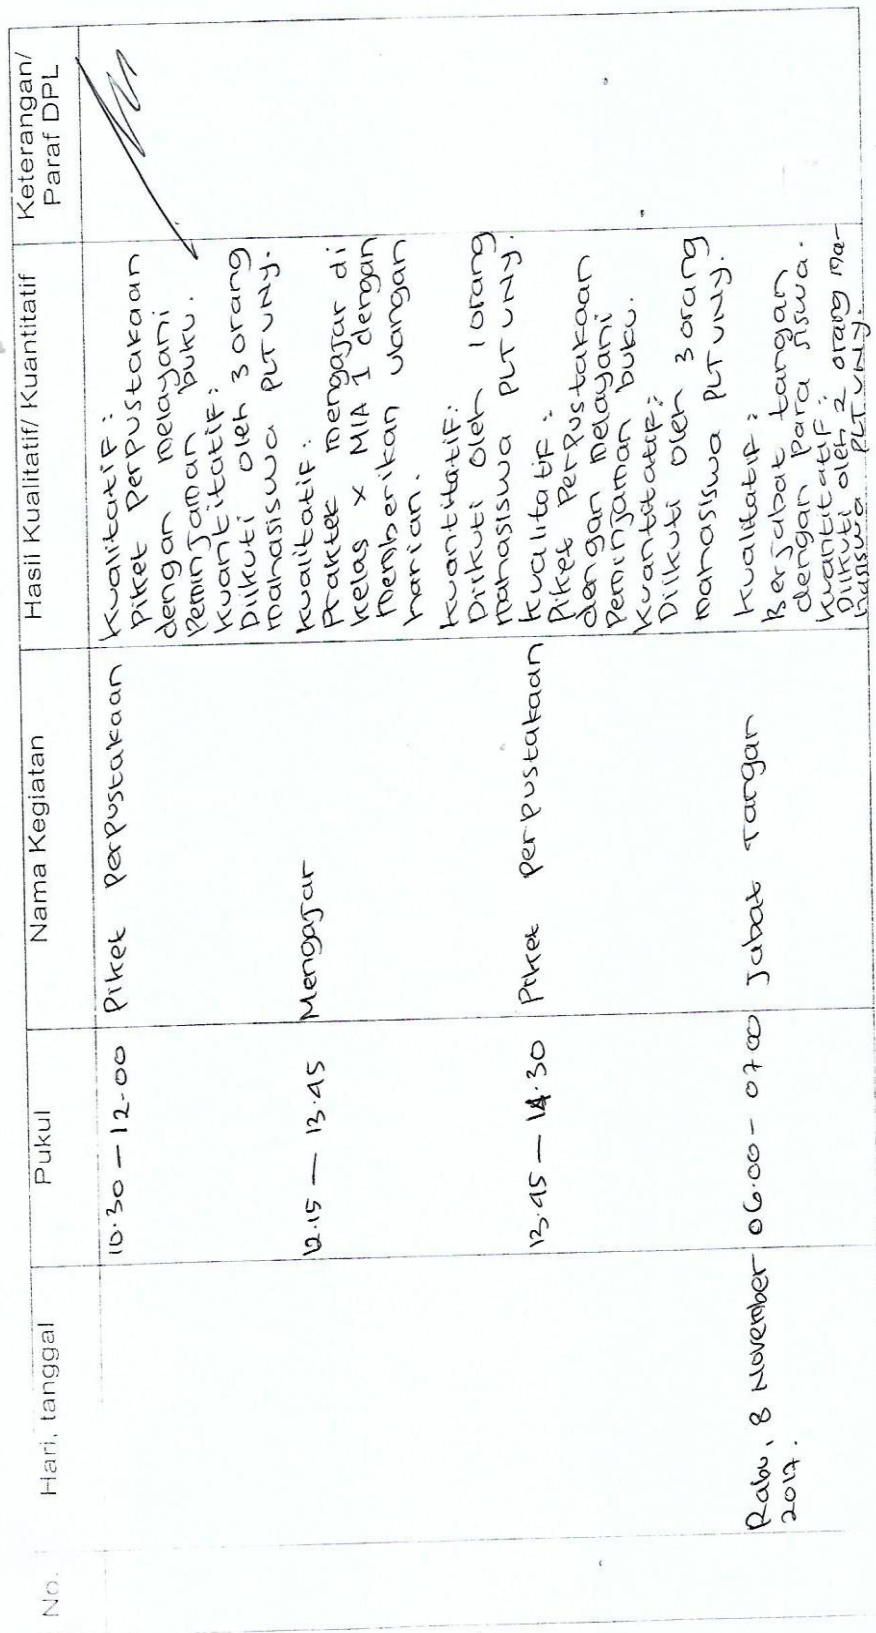 No. Hari, tanggal Pukul Nama Kegiatan Hasil Kualitatif/ Kuantitatif Keterangan/
Paraf DPL
10.30 – 12.00 Piket Perpustakaan Kualitatif:
Piket Perpustakaan
dengan melayani
Peminjaman buku.
Kuantitatif:
Diikuti oleh 3 orang
mahasiswa PLT UNY.
12.15 – 13.45 Mengajar Kualitatif:
Praktek mengajar di
kelas X MIA 1 dengan
memberikan ulangan
harian.
Kuantitatif:
Diikuti oleh 1 orang
mahasiswa PLT UNY.
13.45 – 14.30 Piket Perpustakaan Kualitatif:
Piket Perpustakaan
dengan melayani
Peminjaman buku.
Kuantitatif:
Diikuti oleh 3 orang
mahasiswa PLT UNY.
Rabu, 8 November 06.00 – 07.00 Jabat Tangan Kualitatif:
2017.
Berjabat tangan
dengan para siswa.
Kuantitatif:
Diikuti oleh 2 orang Ma-
hasiswa PLT UNY.